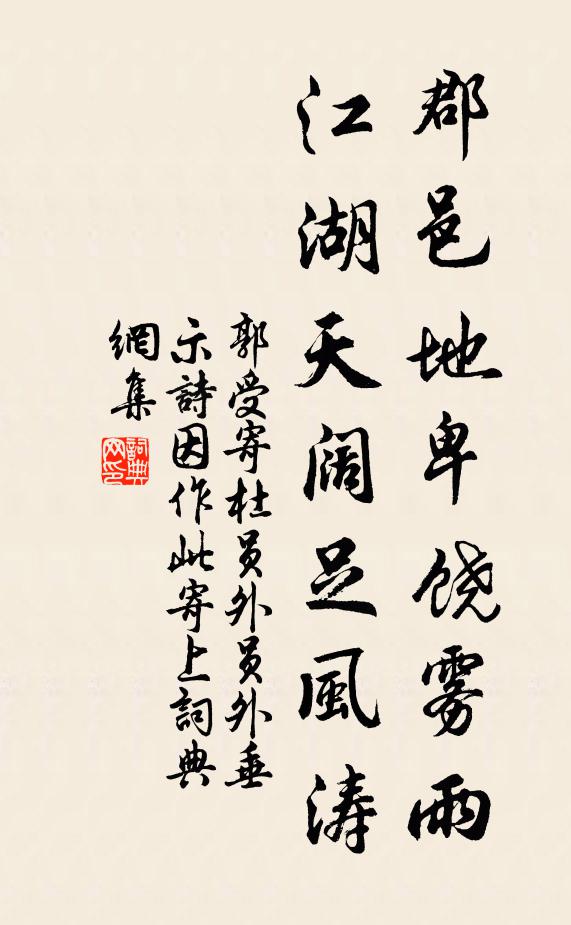 郡邑地卑饶雾雨
江湖天阔足風涛
郭受寄杜员外员外垂
示詩因作此寄上詞典
網集
詞典
网印